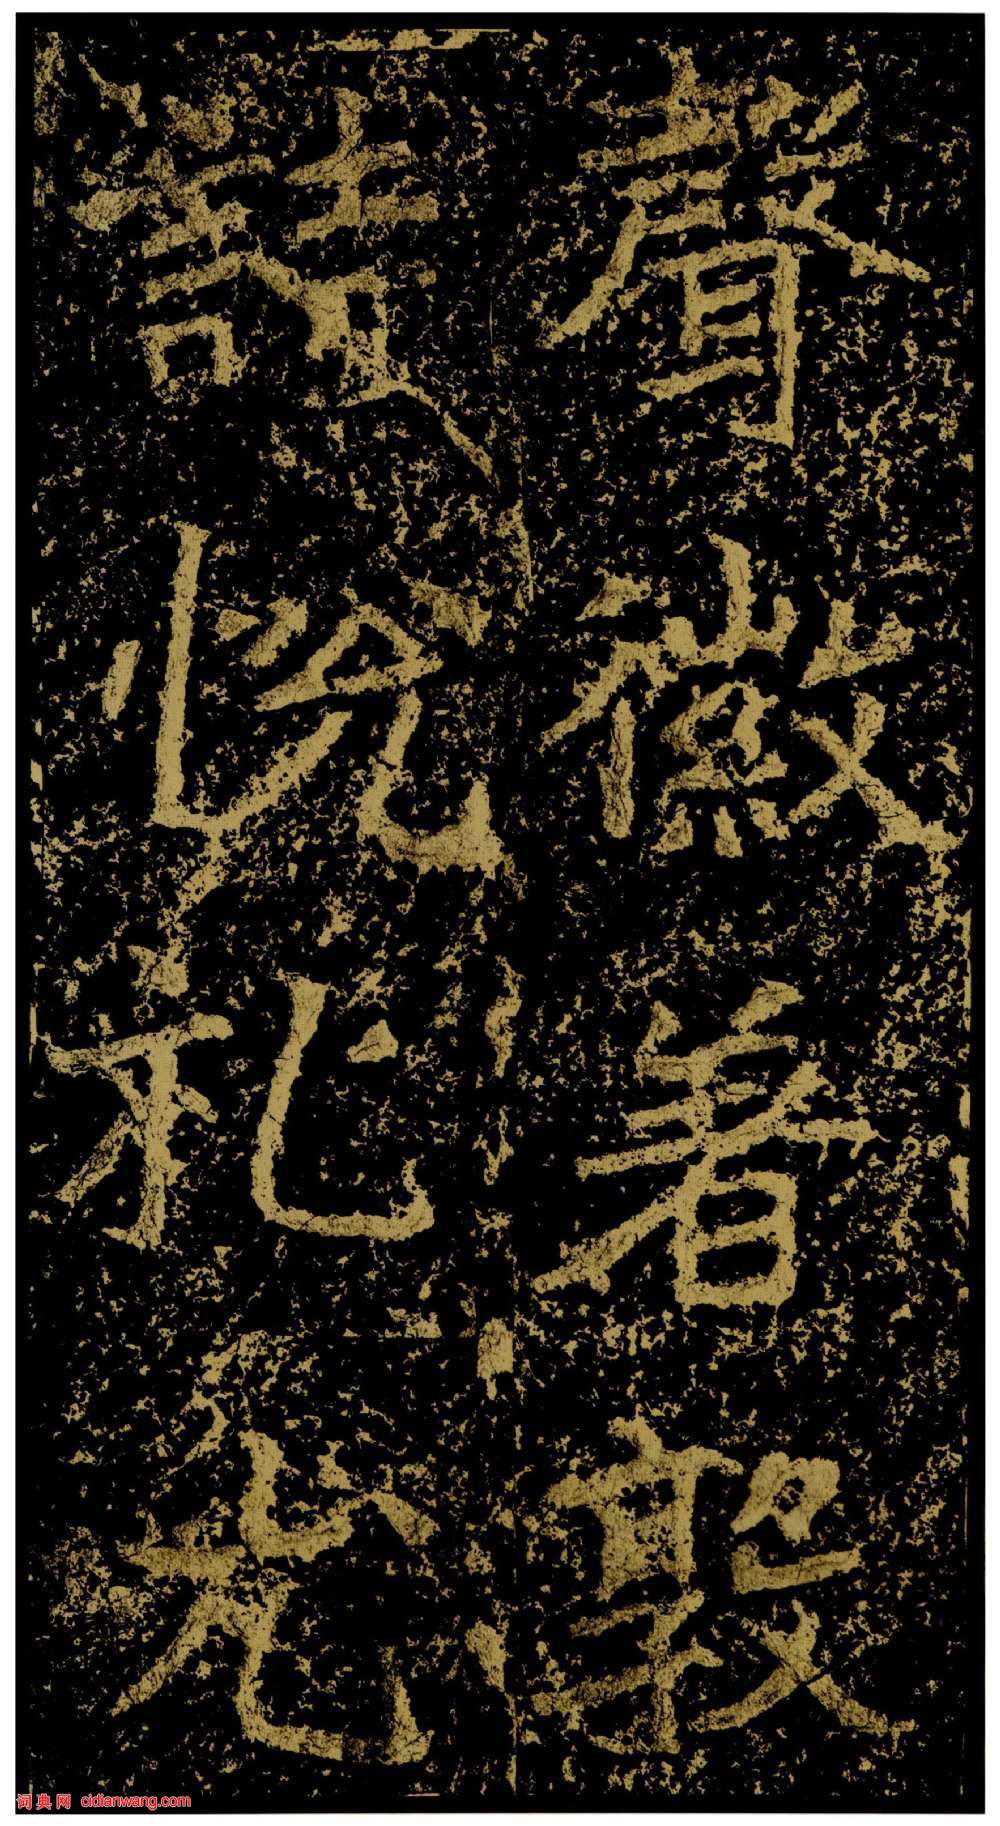 聲徽著敦
詩悦礼尤
词典网 cidianwang.com